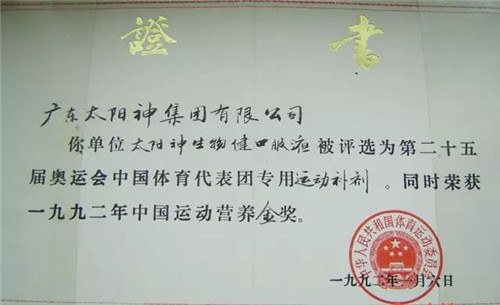 證 書
广东太阳神集团有限公司
你单位太阳神生物健口服液被评选为第二十五
届奥运会中国体育代表团专用运动补剂。同时荣获
一九九二年中国运动营养金奖。
中华人民共和国体育运动委员会
一九九二年一月六日